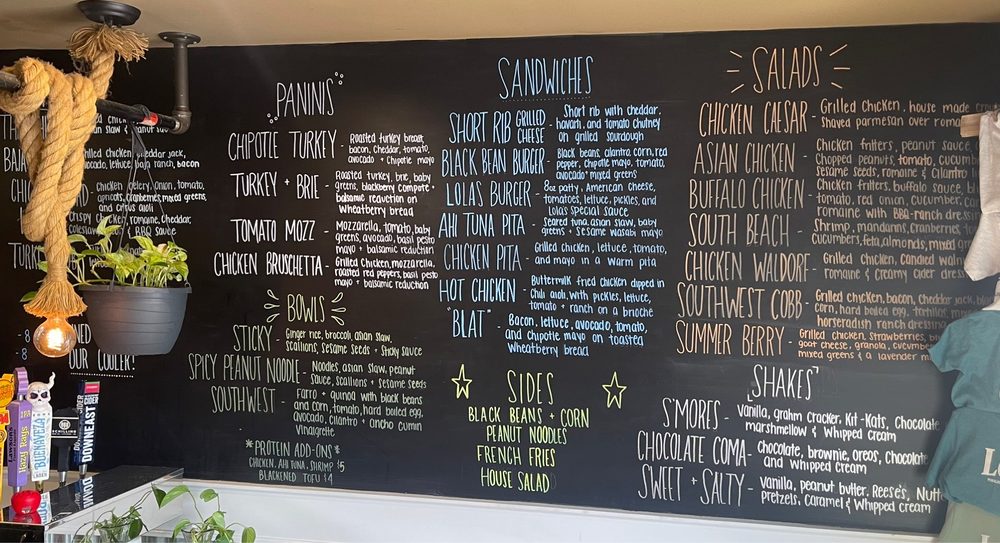 PANINIS
CHIPOTLE TURKEY - Roasted turkey breast,
bacon, cheddar, tomato,
avocado + Chipotle mayo
TURKEY + BRIE - Roasted turkey, brie, baby
greens, blackberry compote +
balsamic reduction on
Wheatberry bread
TOMATO MOZZ - Mozzarella, tomato, baby
greens, avocado, basil pesto
mayo + balsamic reduction
CHICKEN BRUSCHETTA - Grilled Chicken, mozzarella,
roasted red peppers, basil pesto
mayo + balsamic reduction
BOWLS
STICKY - Ginger rice, broccoli, asian slaw,
scallions, sesame seeds + sticky sauce
SPICY PEANUT NOODLE - Noodles, asian slaw, peanut
sauce, scallions + sesame seeds
SOUTHWEST - Farro + quinoa with black beans
and corn, tomato, hard boiled egg,
avocado, cilantro + ancho cumin
vinaigrette
*PROTEIN ADD-ONS*
CHICKEN, AHI TUNA, SHRIMP $5
BLACKENED TOFU $4
SANDWICHES
SHORT RIB GRILLED CHEESE - Short rib with cheddar,
havarti, and tomato chutney
on grilled sourdough
BLACK BEAN BURGER - Black beans, cilantro, corn, red
pepper, chipotle mayo, tomato,
avocado + mixed greens
LOLAS BURGER - 8oz patty, American cheese,
tomatoes, lettuce, pickles, and
Lola's special sauce
AHI TUNA PITA - Seared tuna, asian slaw, baby
greens + sesame wasabi mayo
CHICKEN PITA - Grilled chicken, lettuce, tomato,
and mayo in a warm pita
HOT CHICKEN - Buttermilk fried chicken dipped in
Chili aioli, with pickles, lettuce,
tomato + ranch on a brioche
"BLAT" - Bacon, lettuce, avocado, tomato,
and chipotle mayo on toasted
Wheatberry bread
SIDES
BLACK BEANS + CORN
PEANUT NOODLES
FRENCH FRIES
HOUSE SALAD
SALADS
CHICKEN CAESAR - Grilled chicken, house made
shaved parmesan over
ASIAN CHICKEN - Chicken fritters, peanut sauce,
Chopped peanuts, tomato,
sesame seeds, romaine & cilantro
BUFFALO CHICKEN - Chicken fritters, buffalo sauce,
tomato, red onion, cucumber,
romaine with BBQ-ranch
SOUTH BEACH - Shrimp, mandarins, cranberries,
cucumbers, feta, almonds, mixed
CHICKEN WALDORF - Grilled chicken, Candied
romaine & creamy cider
SOUTHWEST COBB - Grilled chicken, bacon, cheddar jack,
corn, hard boiled egg, tortillas,
horseradish ranch
SUMMER BERRY - Grilled chicken, strawberries,
goat cheese, granola,
mixed greens & a lavender
SHAKES
S'MORES - Vanilla, grahm cracker, Kit-Kats, Chocolate
marshmellow & Whipped cream
CHOCOLATE COMA - Chocolate, brownie, oreos, Chocolate
and whipped cream
SWEET + SALTY - Vanilla, peanut butter, Reese's,
pretzels, caramel & Whipped cream
grilled chicken, cheddar jack,
avocado, lettuce, baja ranch, bacon
Chicken, celery, onion, tomato,
apricots, cranberries, mixed greens
and citrus aioli
Crispy chicken, romaine, cheddar,
OUR COOLER!
Hazy Rays
IPA
BUENAVEZA
SCHILLING
DOWNEAST
CIDER